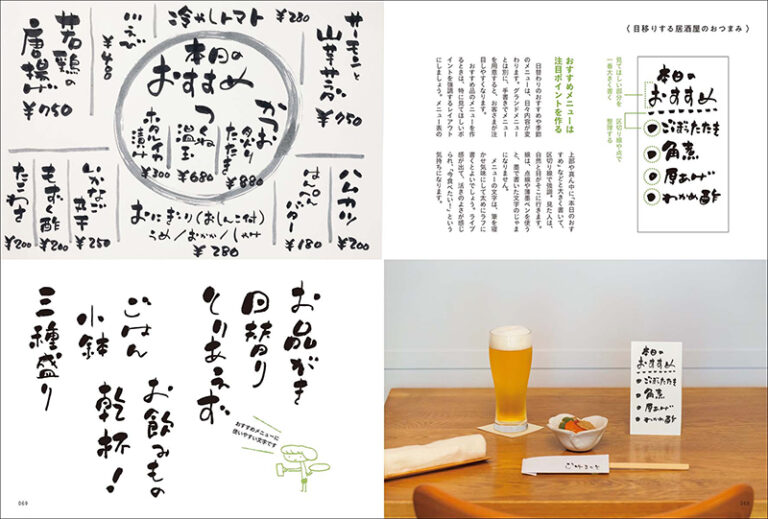 〈 目移りする居酒屋のおつまみ 〉
見てほしい部分を
一番大きく書く
区切り線や点で
整理する
本日の
おすすめ
ごぼうたたき
角煮
厚あげ
わかめ酢
おすすめメニューは
注目ポイントを作る
日替わりのおすすめや季節
のメニューは、日々内容が変
わります。グランドメニュー
とは別に、手書きでメニュー
を用意すると、お客さまが注
目しやすくなります。
おすすめ品のメニューを作
るときは、特に見てほしいポ
イントを強調するレイアウト
にしましょう。メニュー表の
上部や真ん中に、「本日のおす
すめ」などと大きく書いて、
区切り線で強調。見た人は、
自然と目がそこに行きます。
線は、点線や薄墨ペンを使う
と、墨で書いた文字のじゃま
になりません。
メニューの文字は、筆を寝
かせ気味にして太めにラフに
書くとよいでしょう。ライブ
感が出て、活きのよさが感じ
られ、「今食べたい！」という
気持ちになります。
本日の
おすすめ
ごぼうたたき
角煮
厚あげ
わかめ酢
068
サーモンと
山芋サラダ
冷やしトマト ¥280
若鶏の
唐揚げ
¥750
本日の
おすすめ
かつお
炙り
たたき
¥880
つくね
温玉
¥680
ホタルイカ
漬け
¥300
ハムカツ
¥200
はんぺん
バター
¥180
おにぎり(おしんこ付)
うめ/おかか/しゃけ
¥280
いかなご
¥250
もずく酢
¥200
たこわさ
¥200
お品がき
日替り
とりあえず
ごはん
小鉢
三種盛り
お飲みもの
乾杯！
おすすめメニューに
使いやすい文字です
069